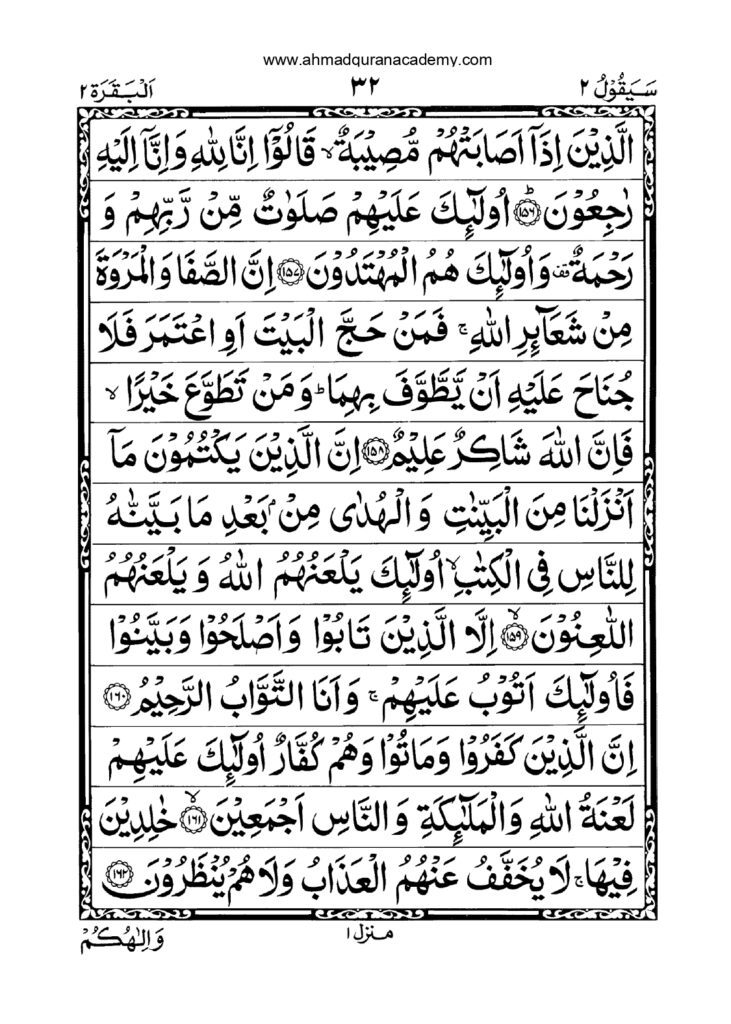 www.ahmadquranacademy.com
سَيَقُوْلُ ٢ ٣٢ اَلْبَقَرَة ٢
الَّذِيْنَ اِذَاۤ اَصَابَتْهُمْ مُّصِيْبَةٌ ۙ قَالُوْۤا اِنَّا لِلّٰهِ وَاِنَّاۤ اِلَيْهِ
رٰجِعُوْنَ ؕ‏﴿۱۵۶﴾ اُولٰٓئِكَ عَلَيْهِمْ صَلَوٰتٌ مِّنْ رَّبِّهِمْ وَ
رَحْمَةٌ ۟ وَاُولٰٓئِكَ هُمُ الْمُهْتَدُوْنَ ﴿۱۵۷﴾ اِنَّ الصَّفَا وَالْمَرْوَةَ
مِنْ شَعَآئِرِ اللّٰهِ ۚ فَمَنْ حَجَّ الْبَيْتَ اَوِ اعْتَمَرَ فَلَا
جُنَاحَ عَلَيْهِ اَنْ يَّطَّوَّفَ بِهِمَا ؕ وَمَنْ تَطَوَّعَ خَيْرًا ۙ
فَاِنَّ اللّٰهَ شَاكِرٌ عَلِيْمٌ ﴿۱۵۸﴾ اِنَّ الَّذِيْنَ يَكْتُمُوْنَ مَاۤ
اَنْزَلْنَا مِنَ الْبَيِّنٰتِ وَالْهُدٰى مِنْۢ بَعْدِ مَا بَيَّنّٰهُ
لِلنَّاسِ فِى الْكِتٰبِ ۙ اُولٰٓئِكَ يَلْعَنُهُمُ اللّٰهُ وَيَلْعَنُهُمُ
اللّٰعِنُوْنَ ۙ﴿۱۵۹﴾ اِلَّا الَّذِيْنَ تَابُوْا وَاَصْلَحُوْا وَبَيَّنُوْا
فَاُولٰٓئِكَ اَتُوْبُ عَلَيْهِمْ ۚ وَاَنَا التَّوَّابُ الرَّحِيْمُ ﴿۱۶۰﴾
اِنَّ الَّذِيْنَ كَفَرُوْا وَمَاتُوْا وَهُمْ كُفَّارٌ اُولٰٓئِكَ عَلَيْهِمْ
لَعْنَةُ اللّٰهِ وَالْمَلٰٓئِكَةِ وَالنَّاسِ اَجْمَعِيْنَ ۙ﴿۱۶۱﴾ خٰلِدِيْنَ
فِيْهَا ۚ لَا يُخَفَّفُ عَنْهُمُ الْعَذَابُ وَلَا هُمْ يُنْظَرُوْنَ ﴿۱۶۲﴾
منزل ١
وَاِلٰهُكُمْ